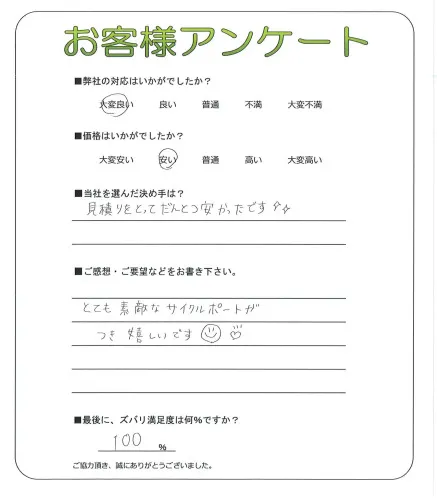 お客様アンケート
■弊社の対応はいかがでしたか？
大変良い 良い 普通 不満 大変不満
■価格はいかがでしたか？
大変安い 安い 普通 高い 大変高い
■当社を選んだ決め手は？
見積りをとってだんとつ安かったです
■ご感想・ご要望などをお書き下さい。
とても素敵なサイクルポートが
つき嬉しいです
■最後に、ズバリ満足度は何%ですか？
100 %
ご協力頂き、誠にありがとうございました。